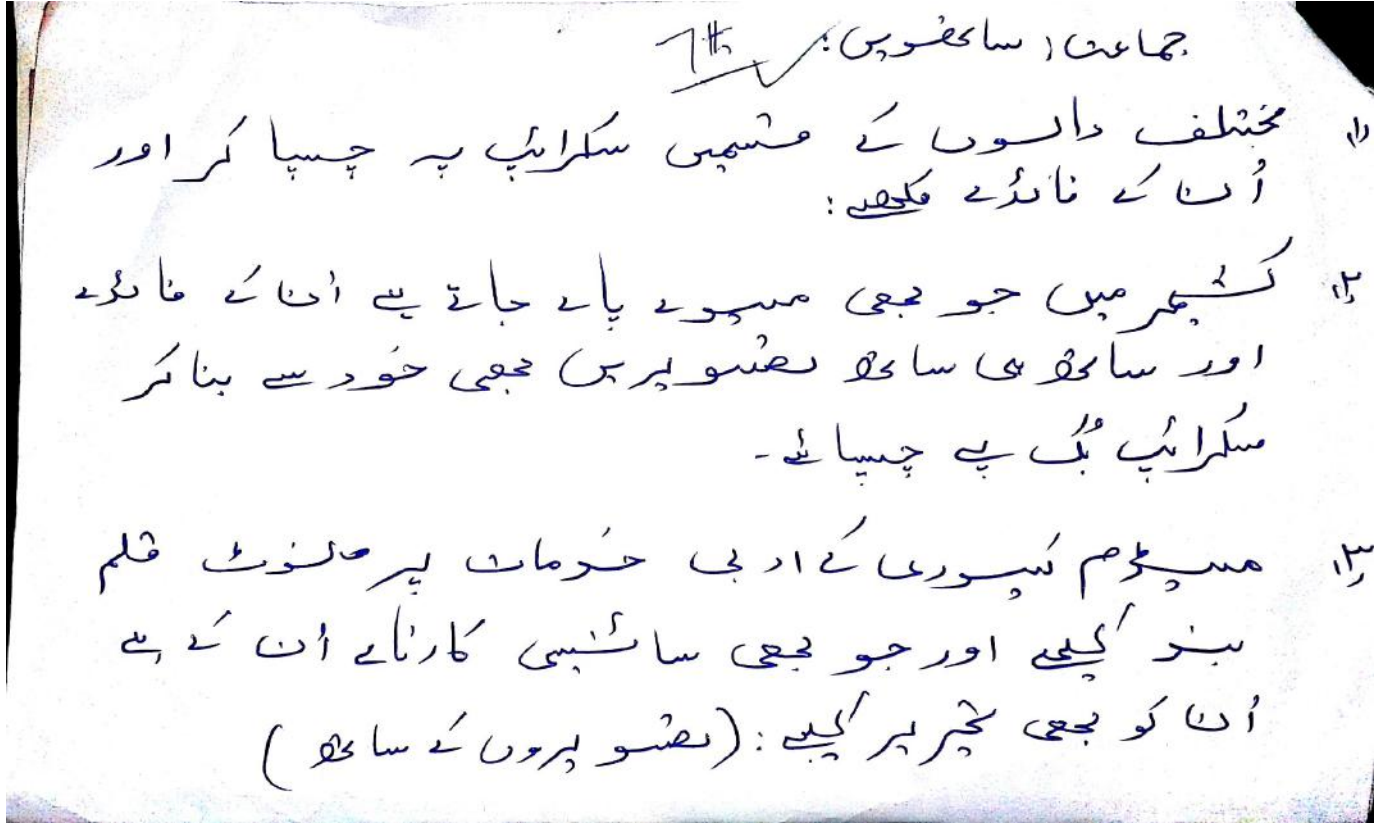 جماعت: ساتھویں: 7th
(۱) مختلف دالوں کے قسمیں سکرائپ پہ چسپا کر اور
اُن کے فائدے لکھے:
(۲) کشمیر میں جو بھی میوے پاے جاتے ہے اُن کے فائدے
اور ساتھ ہی ساتھ تصویریں بھی خود سے بنا کر
سکرائپ بُک پے چسپائے۔
(۳) میڈم کیوری کے ادبی خدمات پر نوٹ قلم
بند کیجیے اور جو بھی سائنسی کارنامے اُن کے ہے
اُن کو بھی تحریر کیجیے: (تصویروں کے ساتھ)